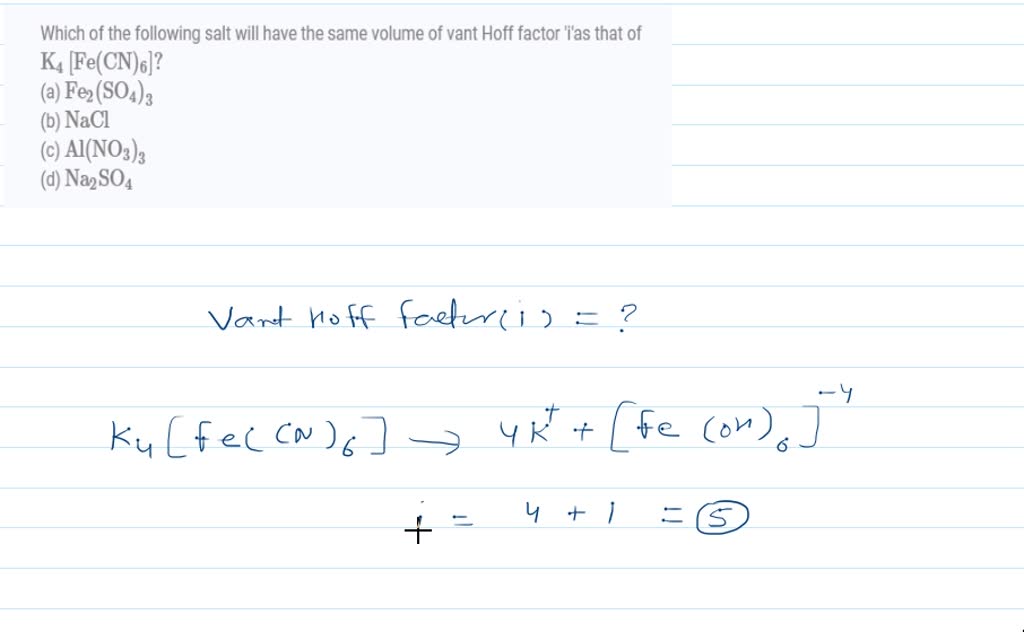 Which of the following salt will have the same volume of vant Hoff factor 'i'as that of
K₄ [Fe(CN)₆]?
(a) Fe₂(SO₄)₃
(b) NaCl
(c) Al(NO₃)₃
(d) Na₂SO₄
Vant Hoff factor(i) = ?
K₄[Fe(CN)₆] → 4K⁺ + [Fe(ON)₆]⁻⁴
i = 4 + 1 = 5